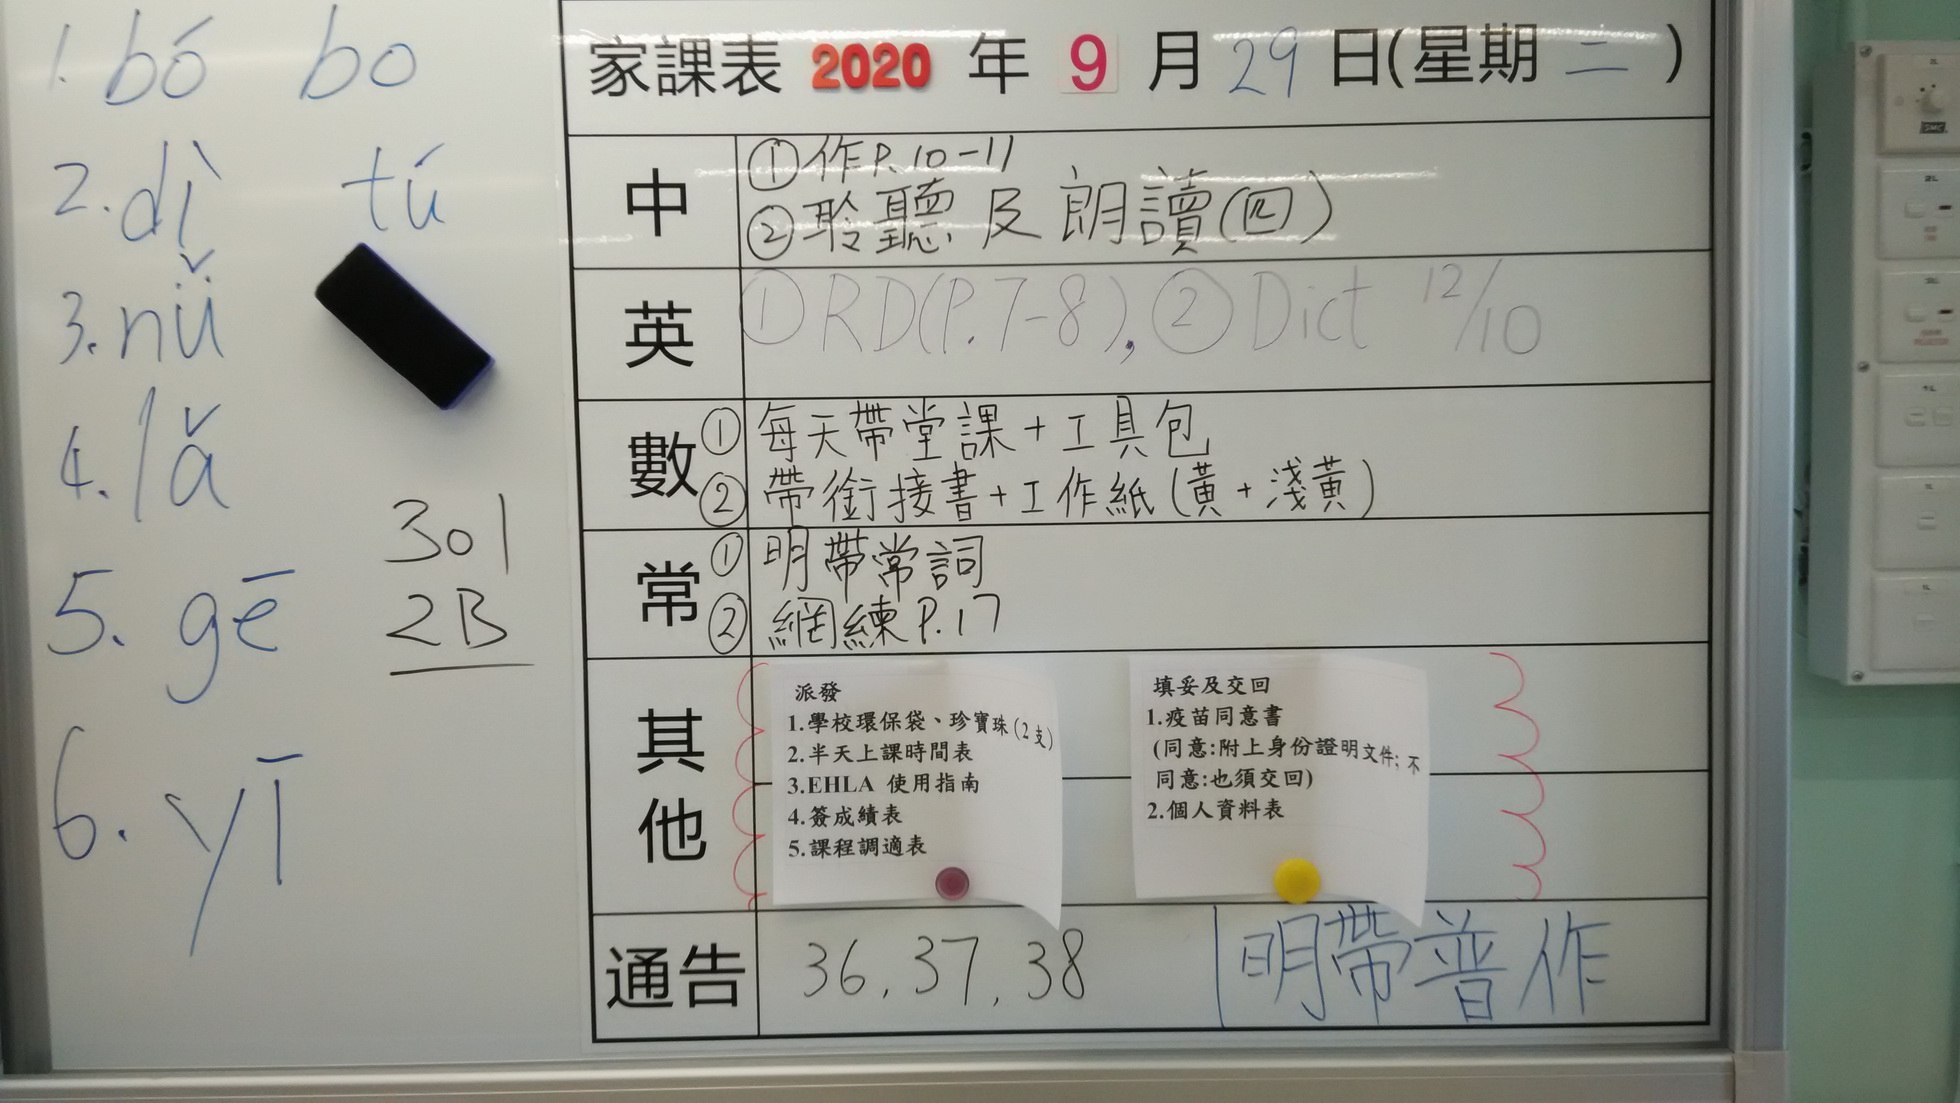 1. bó bo
2. dì tú
3. nǚ
4. lǎ
5. gē
6. yī
301
2B
家課表 2020 年 9 月 29 日(星期 二 )
中
①作P.10-11
②聆聽及朗讀(四)
英
①RD(P.7-8), ②Dict 12/10
數
①每天帶堂課+工具包
②帶銜接書+工作紙(黃+淺黃)
常
①明帶常詞
②網練P.17
其他
派發
1.學校環保袋、珍寶珠(2支)
2.半天上課時間表
3.EHLA 使用指南
4.簽成績表
5.課程調適表
填妥及交回
1.疫苗同意書
(同意:附上身份證明文件; 不
同意:也須交回)
2.個人資料表
通告
36, 37, 38
明帶普作